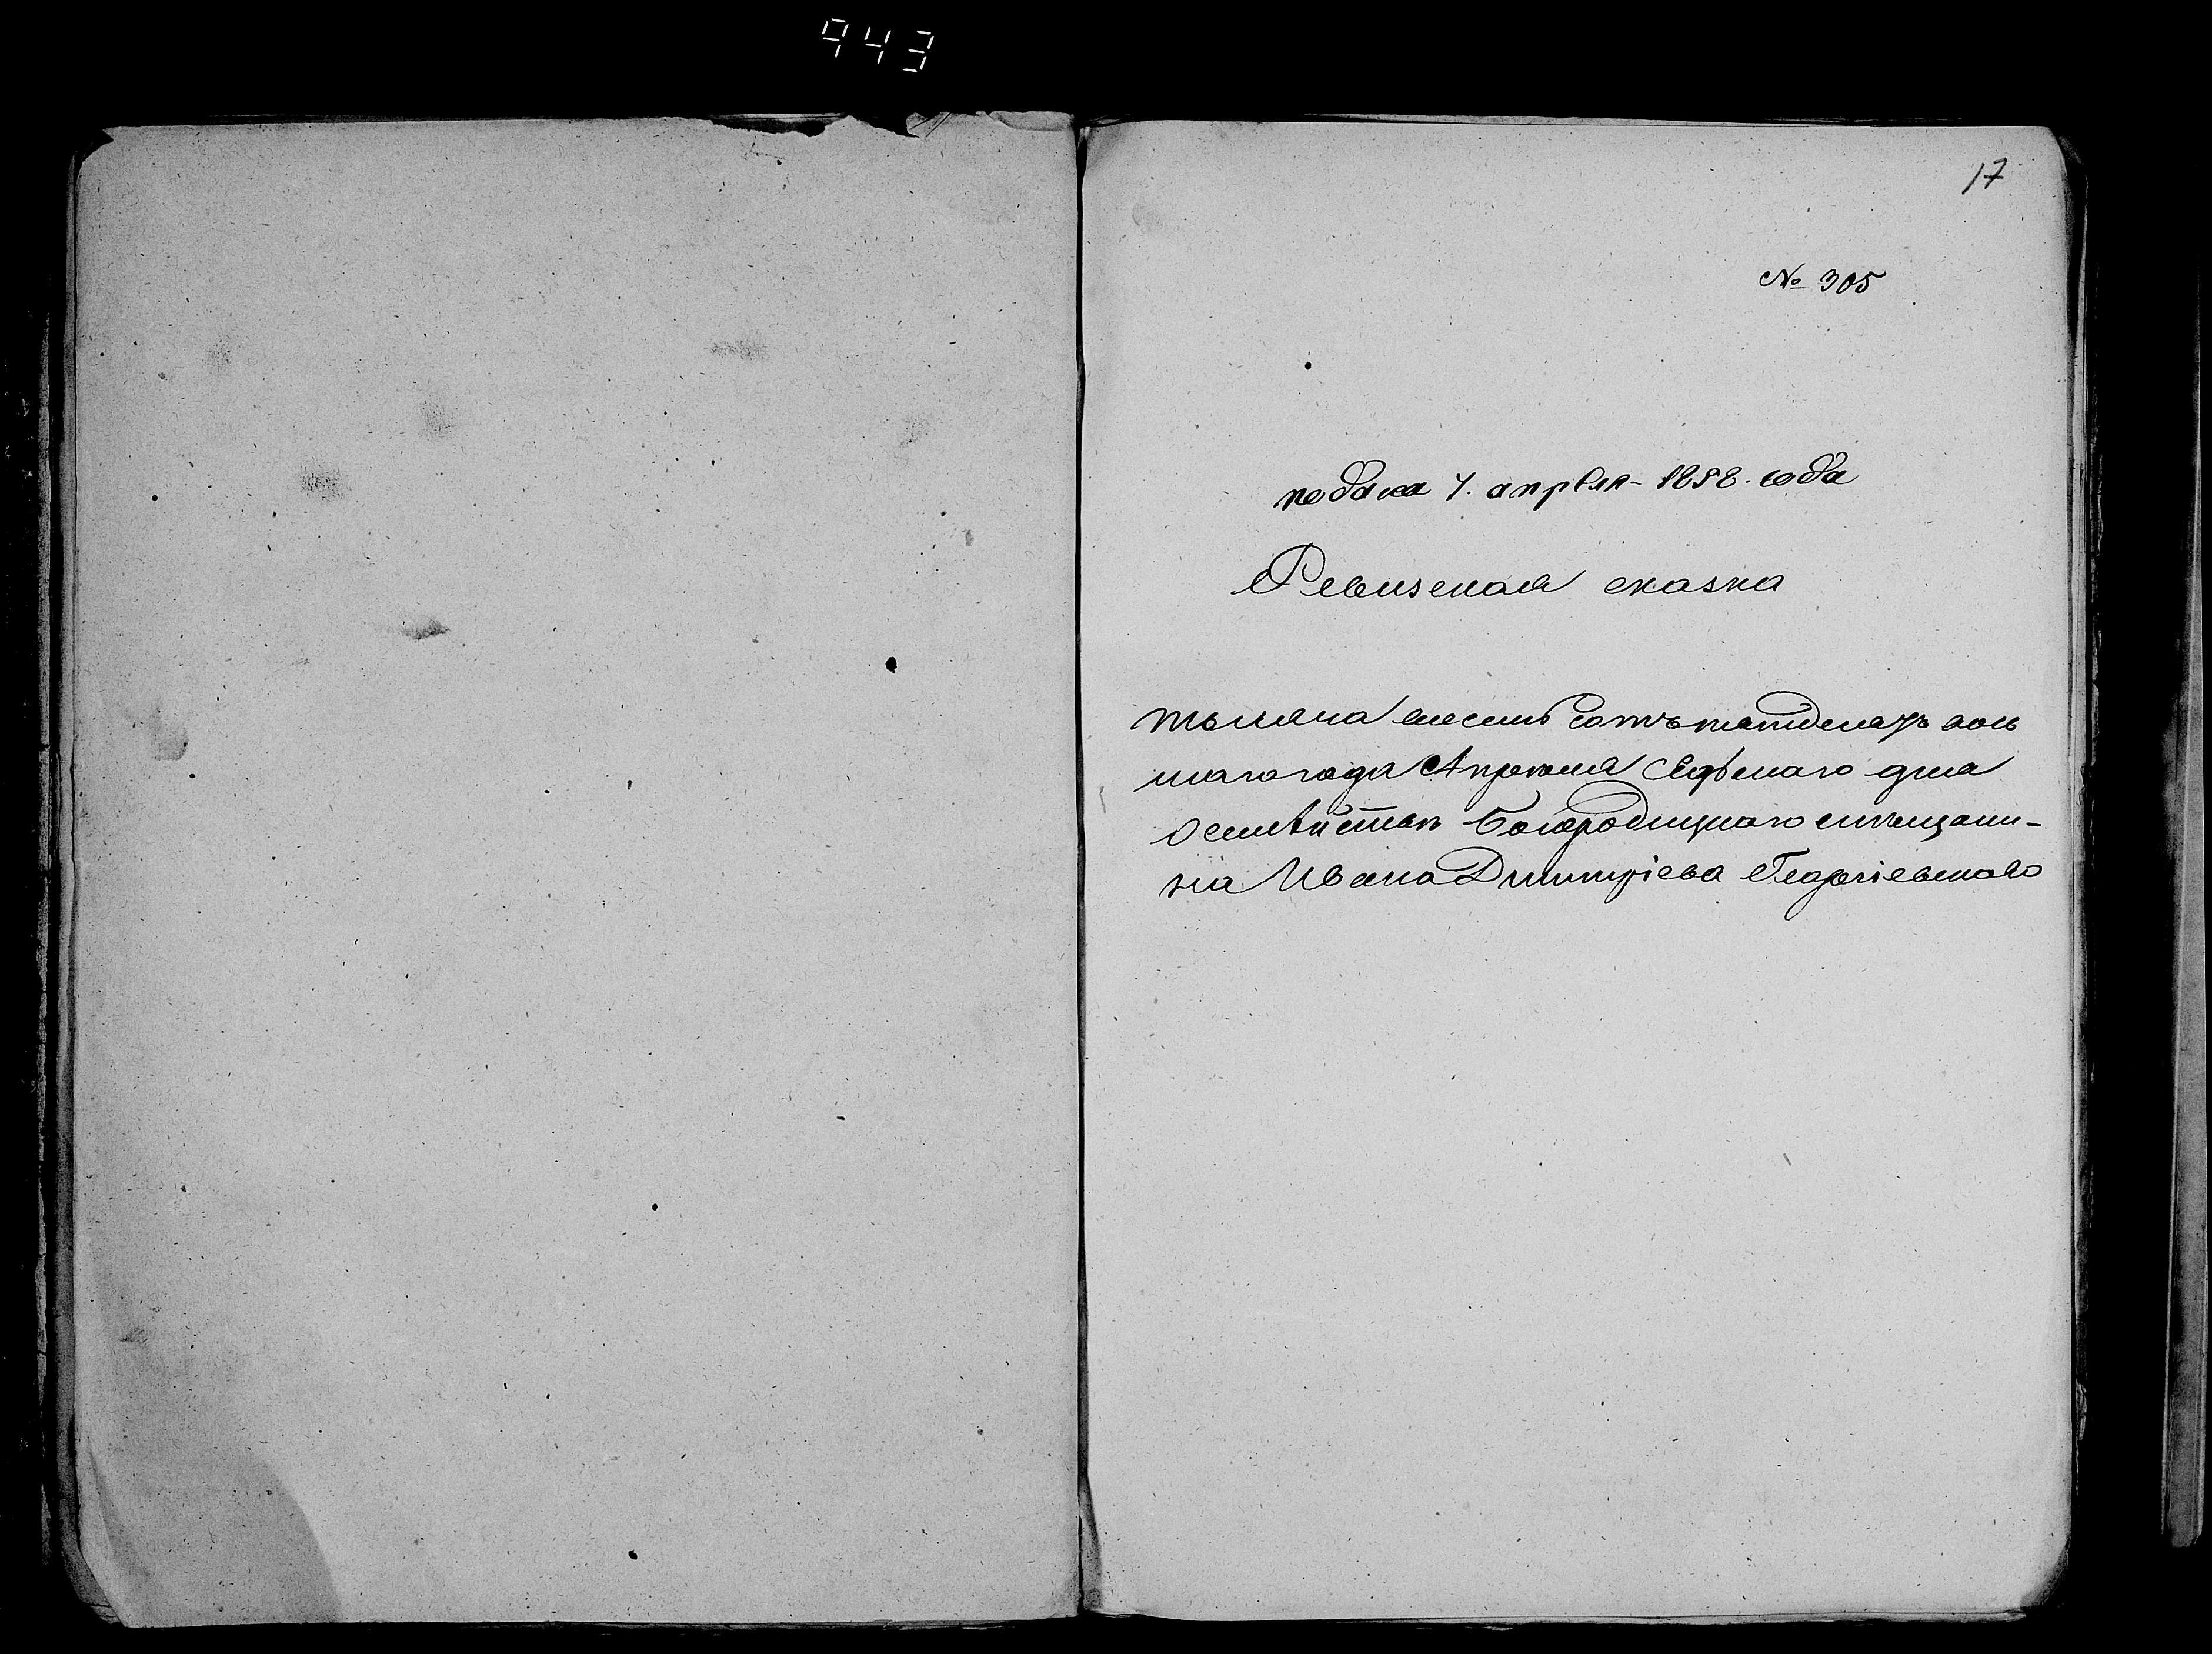 943
17
№ 305
подана 7. апреля - 1858. года
Ревизская сказка
тысяча восемь сотъ пятьдесятъ вось
маго года Апреля Седьмаго дня
о семействѣ Богородицкаго мѣщани-
на Ивана Дмитріева Георгіевскаго